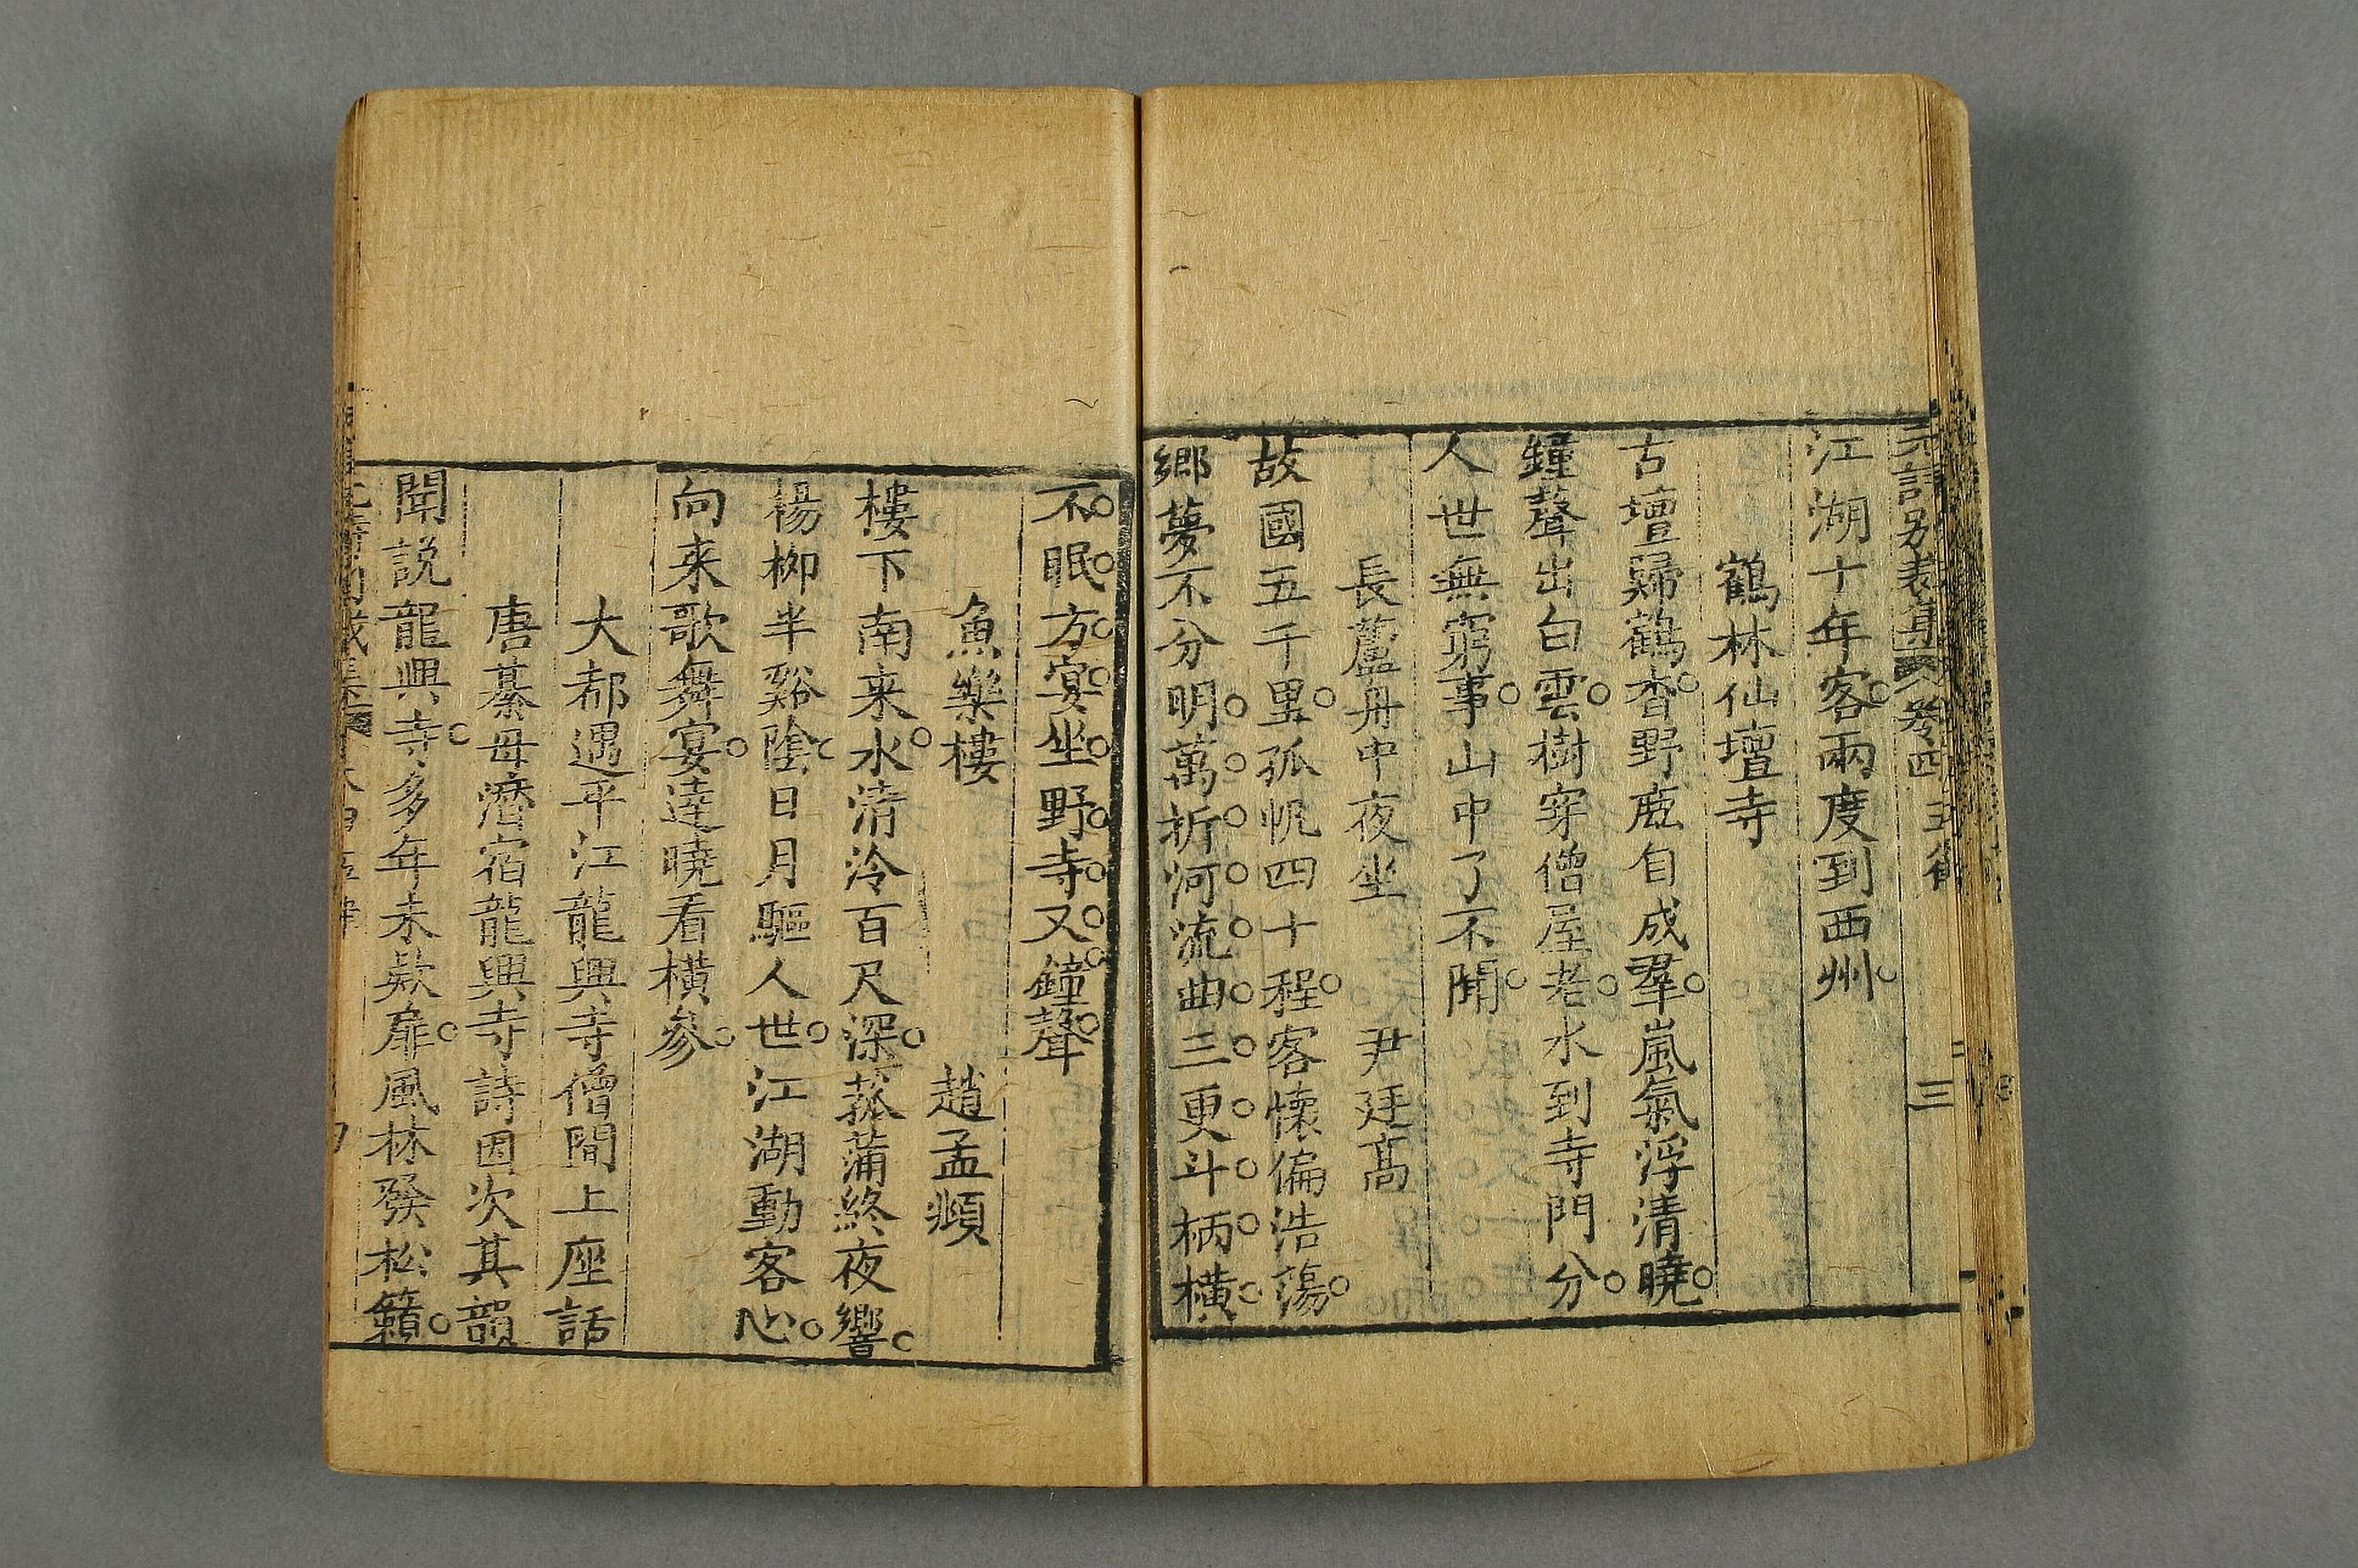 江湖十年客兩度到西州
鶴林仙壇寺
古壇歸鶴杳野鹿自成羣嵐氣浮清曉
鐘聲出白雲樹穿僧屋老水到寺門分
人世無窮事山中了不聞
長蘆舟中夜坐 尹廷高
故國五千里孤帆四十程客懷偏浩蕩
鄉夢不分明萬折河流曲三更斗柄橫
不眠方宴坐野寺又鐘聲
魚樂樓 趙孟頫
樓下南来水清泠百尺深菰蒲終夜響
楊柳半谿陰日月驅人世江湖動客心
向来歌舞宴達曉看橫參
大都遇平江龍興寺僧間上座話
唐綦毋潛宿龍興寺詩因次其韻
聞説龍興寺多年未欵扉風林發松籟